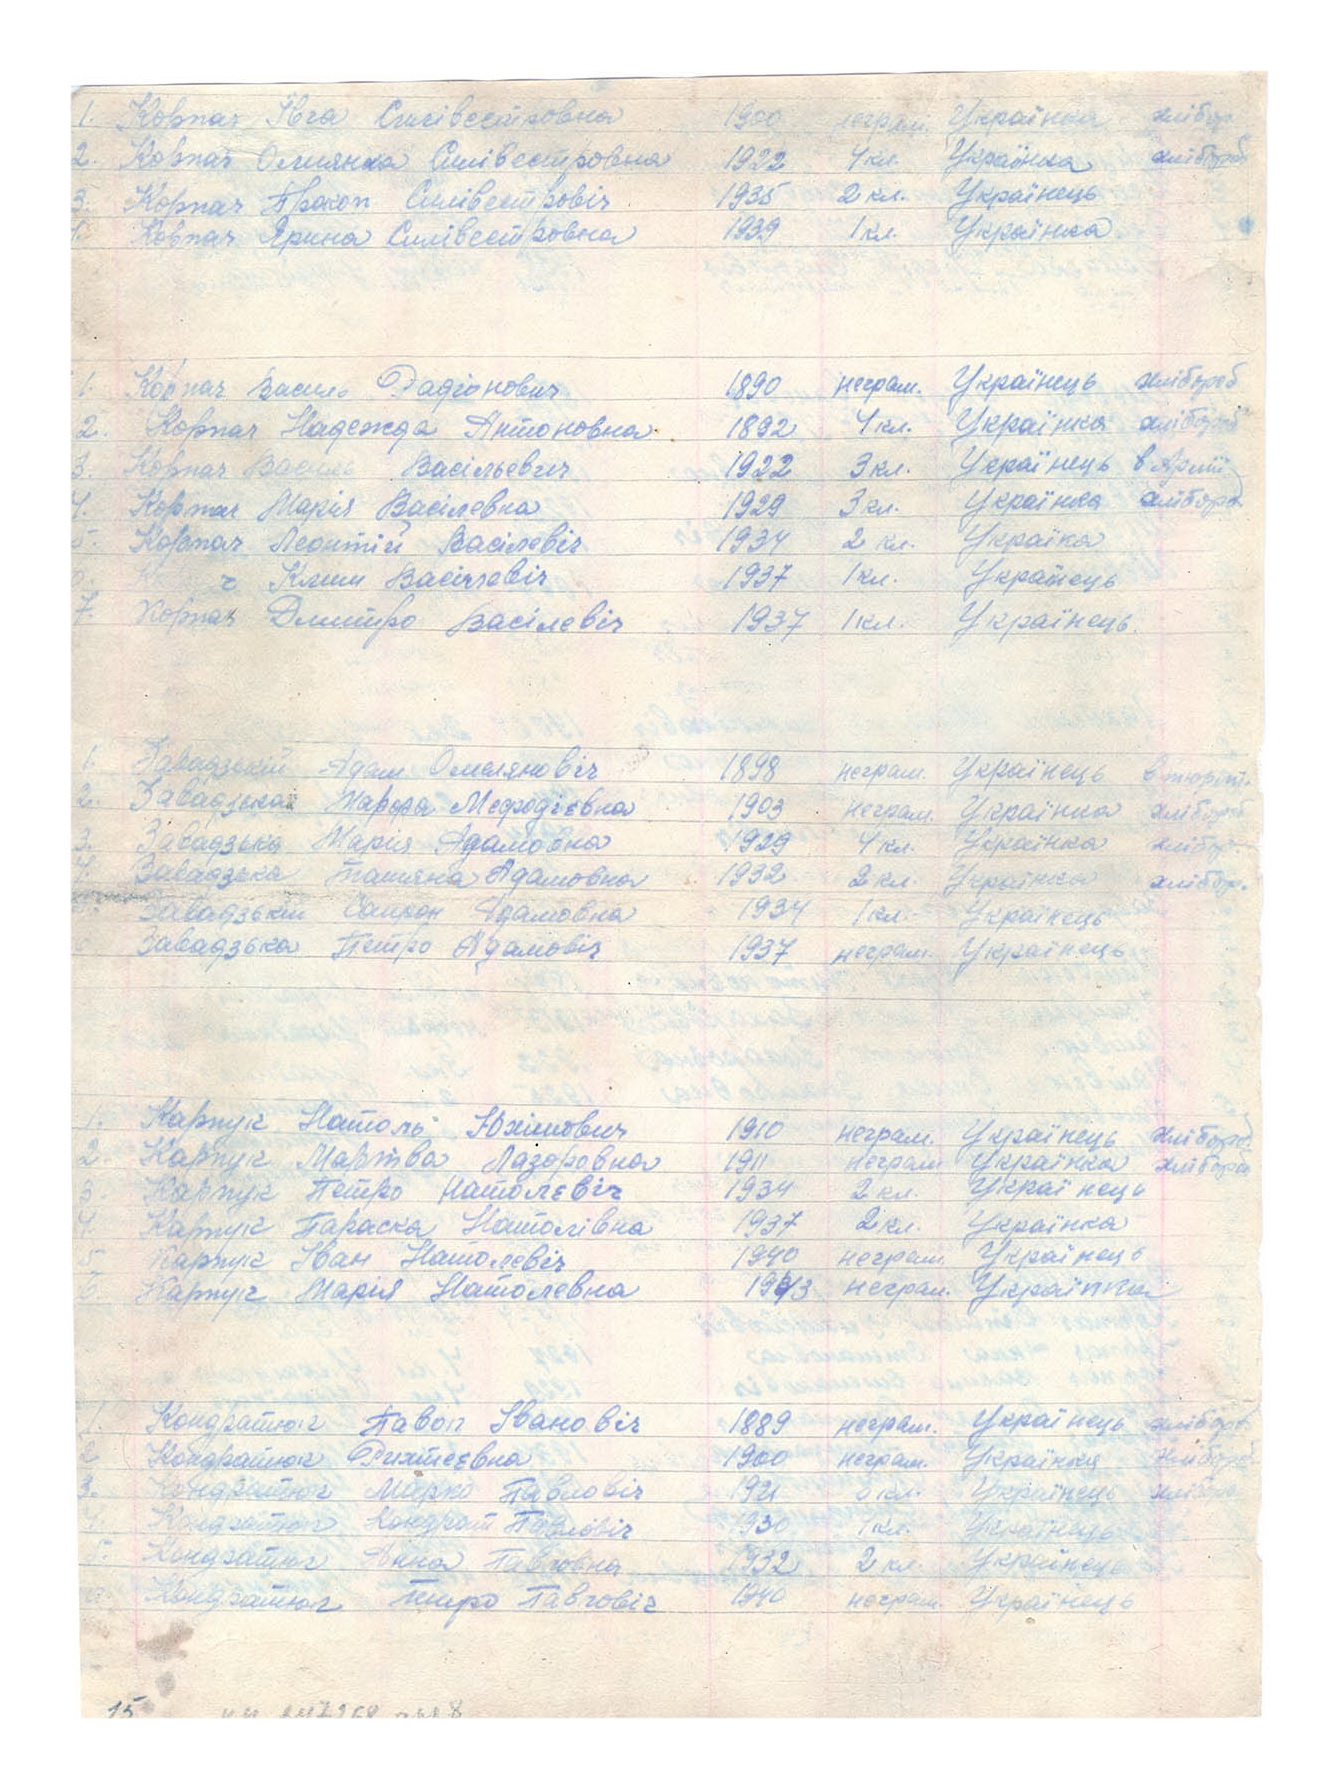 1. Корпач Ївга Силівестровна 1900 неграм. Українка хлібор
2. Корпач Омилянка Силівестровна 1922 4 кл. Українка хлібороб
3. Корпач Прокоп Силівестровіч 1935 2 кл. Українець
Корпач Ярина Силівестровна 1939 1 кл. Українка
1. Корпач Василь Радіонович 1890 неграм. Українець хлібороб
2. Корпач Надежда Антоновна 1892 4 кл. Українка хлібороб
3. Корпач Василь Васільевич 1922 3 кл. Українець в Армії
4. Корпач Марія Васілевна 1929 3 кл. Українка хлібороб
5. Корпач Леонтій Васілевіч 1934 2 кл. Українка
Клим Васілевіч 1937 1 кл. Українець
7. Корпач Дмитро Васілевіч 1937 1 кл. Українець
1. Завадзький Адам Омеляновіч 1898 неграм. Українець
2. Завадзька Марфа Мефодієвна 1903 неграм. Українка хлібороб
3. Завадзька Марія Адамовна 1929 4 кл. Українка хлібор.
4. Завадзька Татяна Адамовна 1932 2 кл. Українка хлібор.
Завадзький Самсон Адамовна 1934 1 кл. Українець
Завадзька Петро Адамовіч 1937 неграм. Українець
1. Карпук Натоль Юхімович 1910 неграм. Українець хлібороб
2. Карпук Мартва Лазоровна 1911 неграм Українка хлібороб
3. Карпук Петро Натолєвіч 1934 2 кл. Українець
4. Карпук Параска Натолівна 1937 2 кл. Українка
5 Карпук Іван Натолевіч 1940 неграм Українець
6. Карпук Марія Натолевна 1943 неграм. Українка
1. Кондратюк Павол Івановіч 1889 неграм. Українець хлібороб
2 Кондратюк 1900 неграм. Українка хлібороб
3. Кондратюк Марко Павловіч 1921 кл. Українець хлібороб
Кондратюк Кондрат Павловіч 1930 1 кл. Українець
5. Кондратюк Анна Павловна 1932 2 кл. Українець
Кондратюк Петро Павловіч 1940 неграм. Українець
15